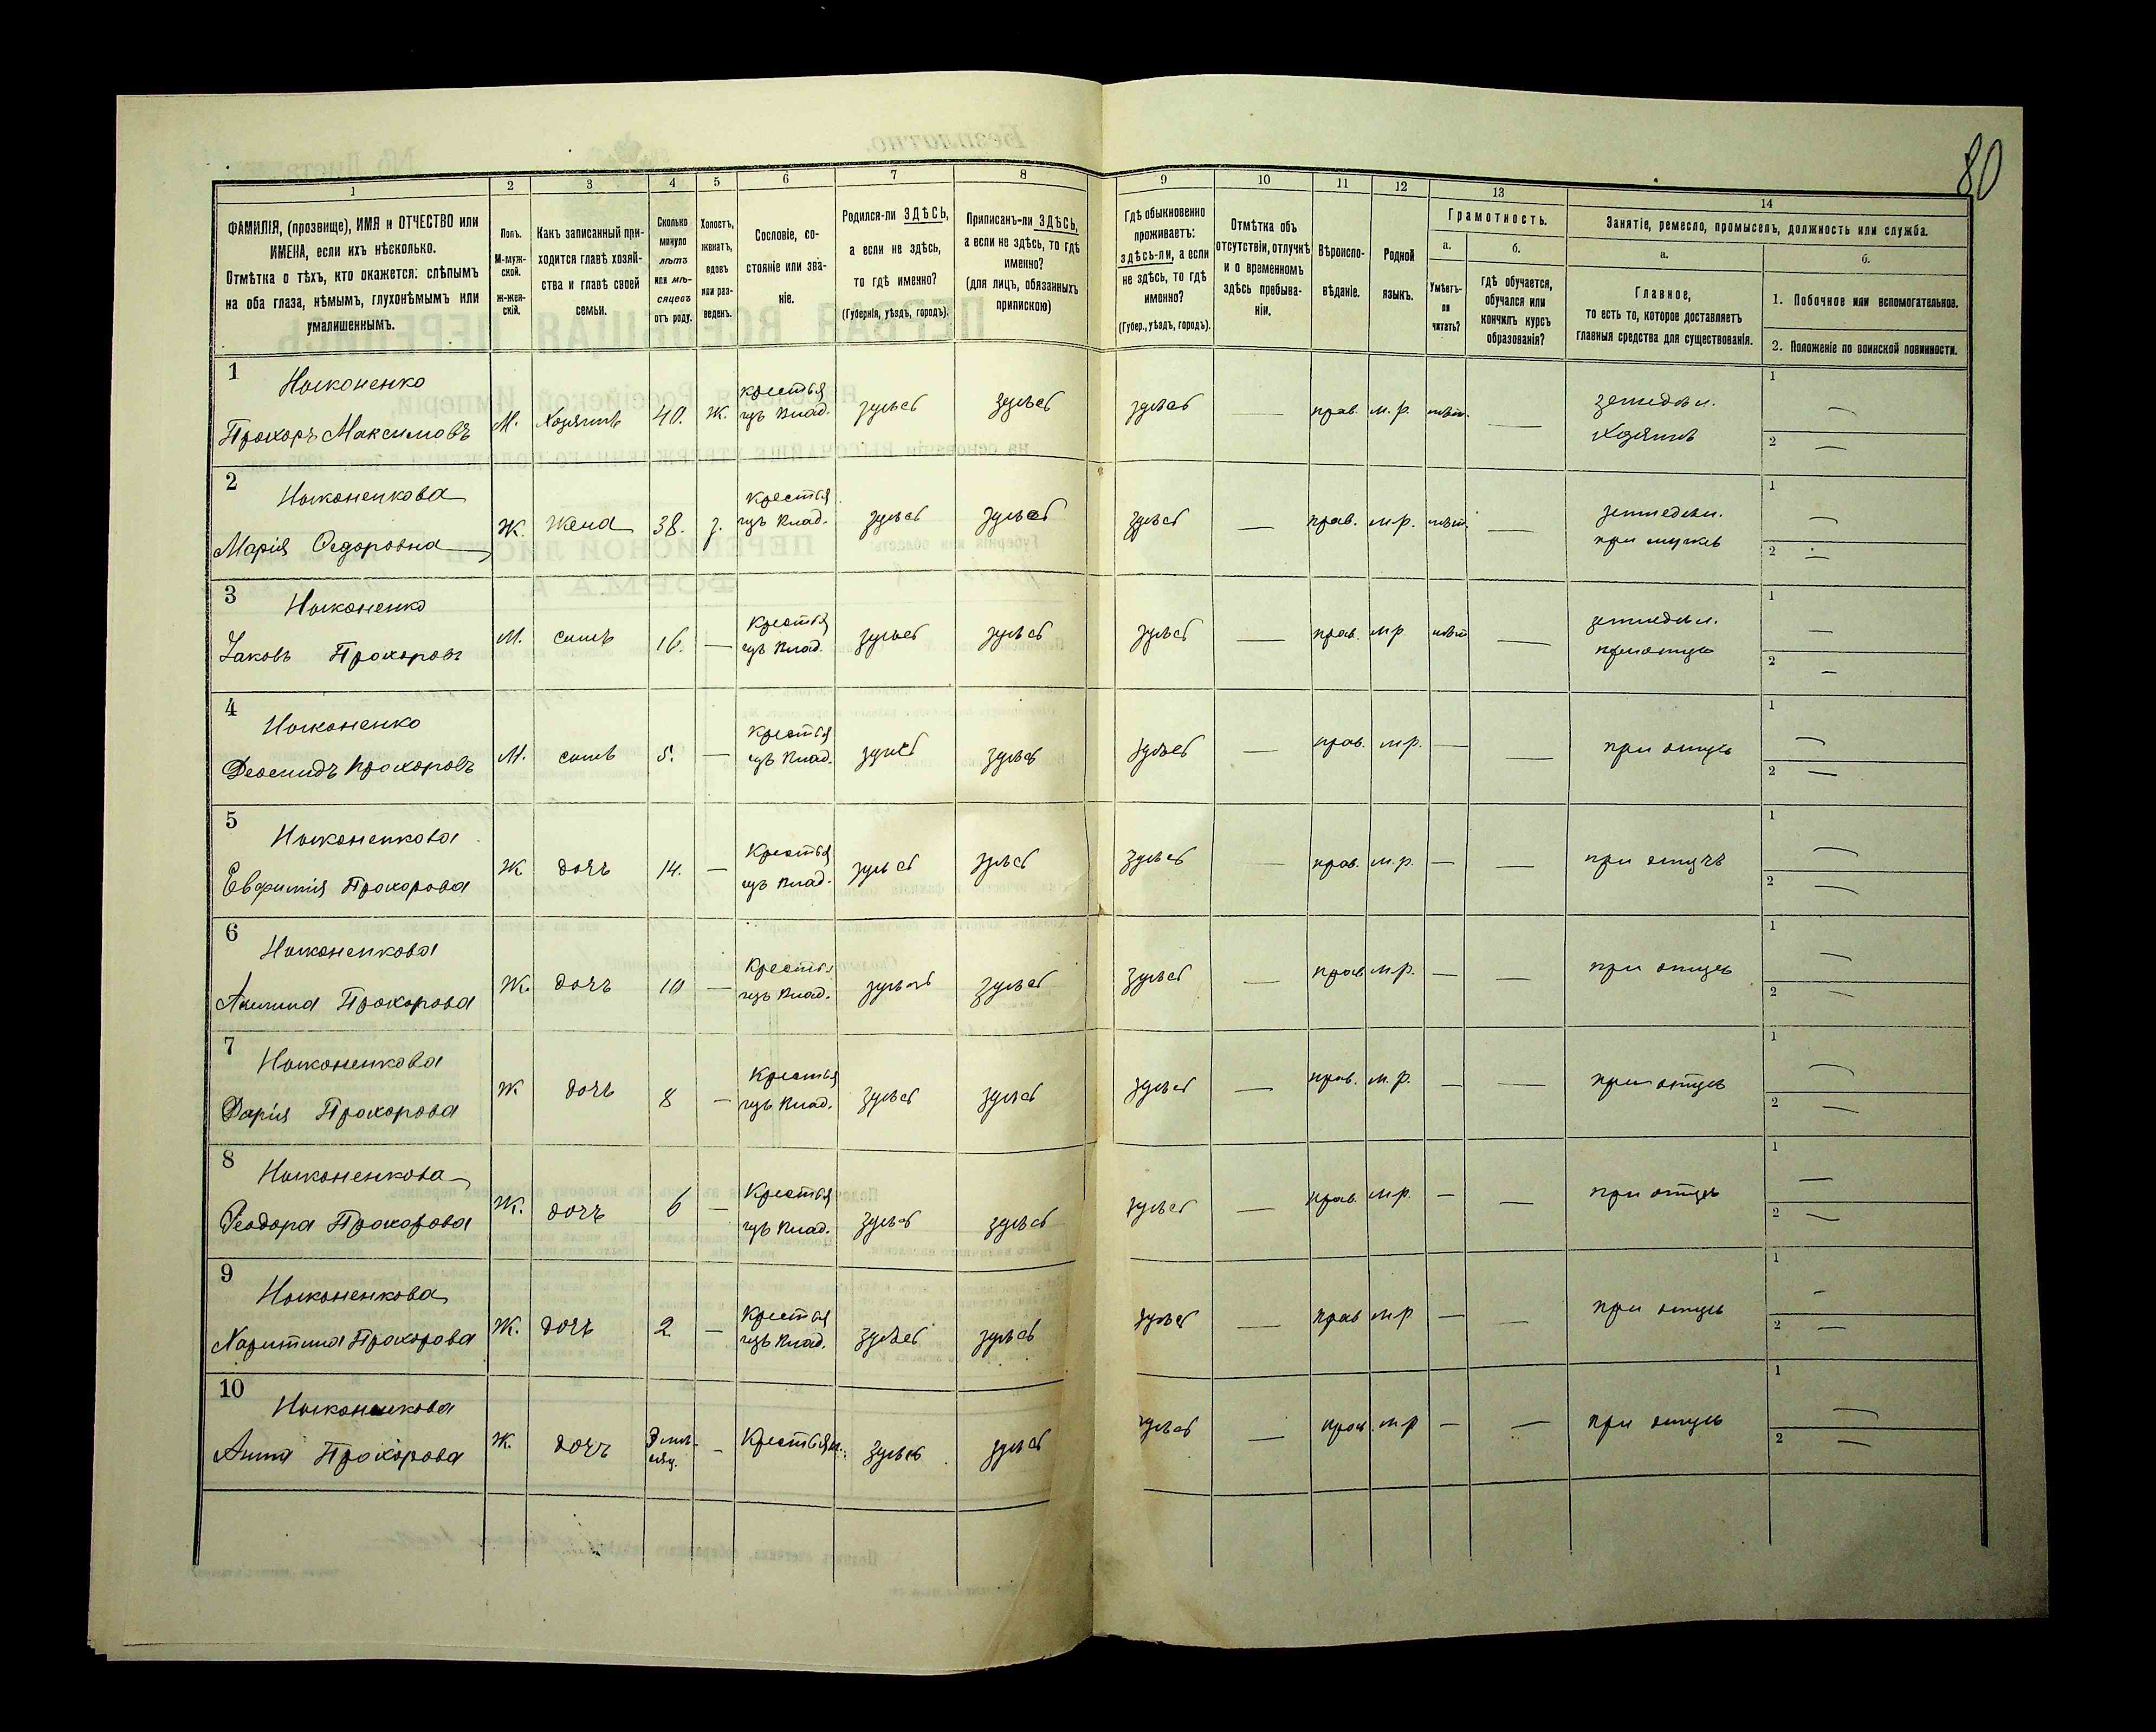 80
1 2 3 4 5 6 7 8 9 10 11 12 13 14
ФАМИЛІЯ, (прозвище), ИМЯ и ОТЧЕСТВО или
ИМЕНА, если ихъ нѣсколько.
Отмѣтка о тѣхъ, кто окажется: слѣпымъ
на оба глаза, нѣмымъ, глухонѣмымъ или
умалишеннымъ.
Полъ.
М-муж-
ской.
ж-жен-
скій.
Какъ записанный при-
ходится главѣ хозяй-
ства и главѣ своей
семьи.
Сколько
минуло
лѣтъ
или мѣ-
сяцевъ
отъ роду.
Холостъ,
женатъ,
вдовъ
или раз-
веденъ.
Сословіе, со-
стояніе или зва-
ніе.
Родился-ли ЗДѢСЬ,
а если не здѣсь,
то гдѣ именно?
(Губернія, уѣздъ, городъ).
Приписанъ-ли ЗДѢСЬ,
а если не здѣсь, то гдѣ
именно?
(для лицъ, обязанныхъ
припискою)
Гдѣ обыкновенно
проживаетъ:
здѣсь-ли, а если
не здѣсь, то гдѣ
именно?
(Губер., уѣздъ, городъ).
Отмѣтка объ
отсутствіи, отлучкѣ
и о временномъ
здѣсь пребыва-
ніи.
Вѣроиспо-
вѣданіе.
Родной
языкъ.
Грамотность.
а.
Умѣетъ-
ли
читать?
б.
гдѣ обучается,
обучался или
кончилъ курсъ
образованія?
Занятіе, ремесло, промыселъ, должность или служба.
а.
Главное,
то есть то, которое доставляетъ
главныя средства для существованія.
б.
1. Побочное или вспомогательное.
2. Положеніе по воинской повинности.
1
Прохоръ Максимовъ
М. Хозяинъ 40. Ж. крестья изъ влад. здѣсь здѣсь здѣсь — прав. м.р. нѣт. — земледѣл. хозяинъ
1 —
2 —
2
Марія Ѳедоровна
Ж. жена 38. з. крестья изъ влад. здѣсь здѣсь здѣсь — прав. м.р. нѣт. — земледѣл. при мужѣ
1 —
2 —
3
Яковъ Прохоровъ
М. сынъ 16. — крестья изъ влад. здѣсь здѣсь здѣсь — прав. м.р. нѣт — земледѣл. при отцѣ
1 —
2 —
4
Леонидъ Прохоровъ
М. сынъ 5. — крестья изъ влад. здѣсь здѣсь здѣсь — прав. м.р. — — при отцѣ
1 —
2 —
5
Евфимія Прохорова
Ж дочь 14. — Крестья изъ влад. здѣсь здѣсь здѣсь — прав. м.р. — — при отцѣ
1 —
2 —
6
Акилина Прохорова
Ж. дочь 10 — Крестья изъ влад. здѣсь здѣсь здѣсь — прав. м.р. — — при отцѣ
1 —
2 —
7
Дарія Прохорова
Ж дочь 8 — Крестья изъ влад. здѣсь здѣсь здѣсь — прав. м.р. — — при отцѣ
1 —
2 —
8
Ѳеодора Прохорова
Ж. дочь 6 — Крестья изъ влад. здѣсь здѣсь здѣсь — прав. м.р. — — при отцѣ
1 —
2 —
9
Харитина Прохорова
Ж. дочь 2 — Крестья изъ влад. здѣсь здѣсь здѣсь — прав м.р. — — при отцѣ
1 —
2 —
10
Анна Прохорова
Ж. дочь мѣ- сяц. — Крестьян. здѣсь здѣсь здѣсь — прав. м.р — — при отцѣ
1 —
2 —